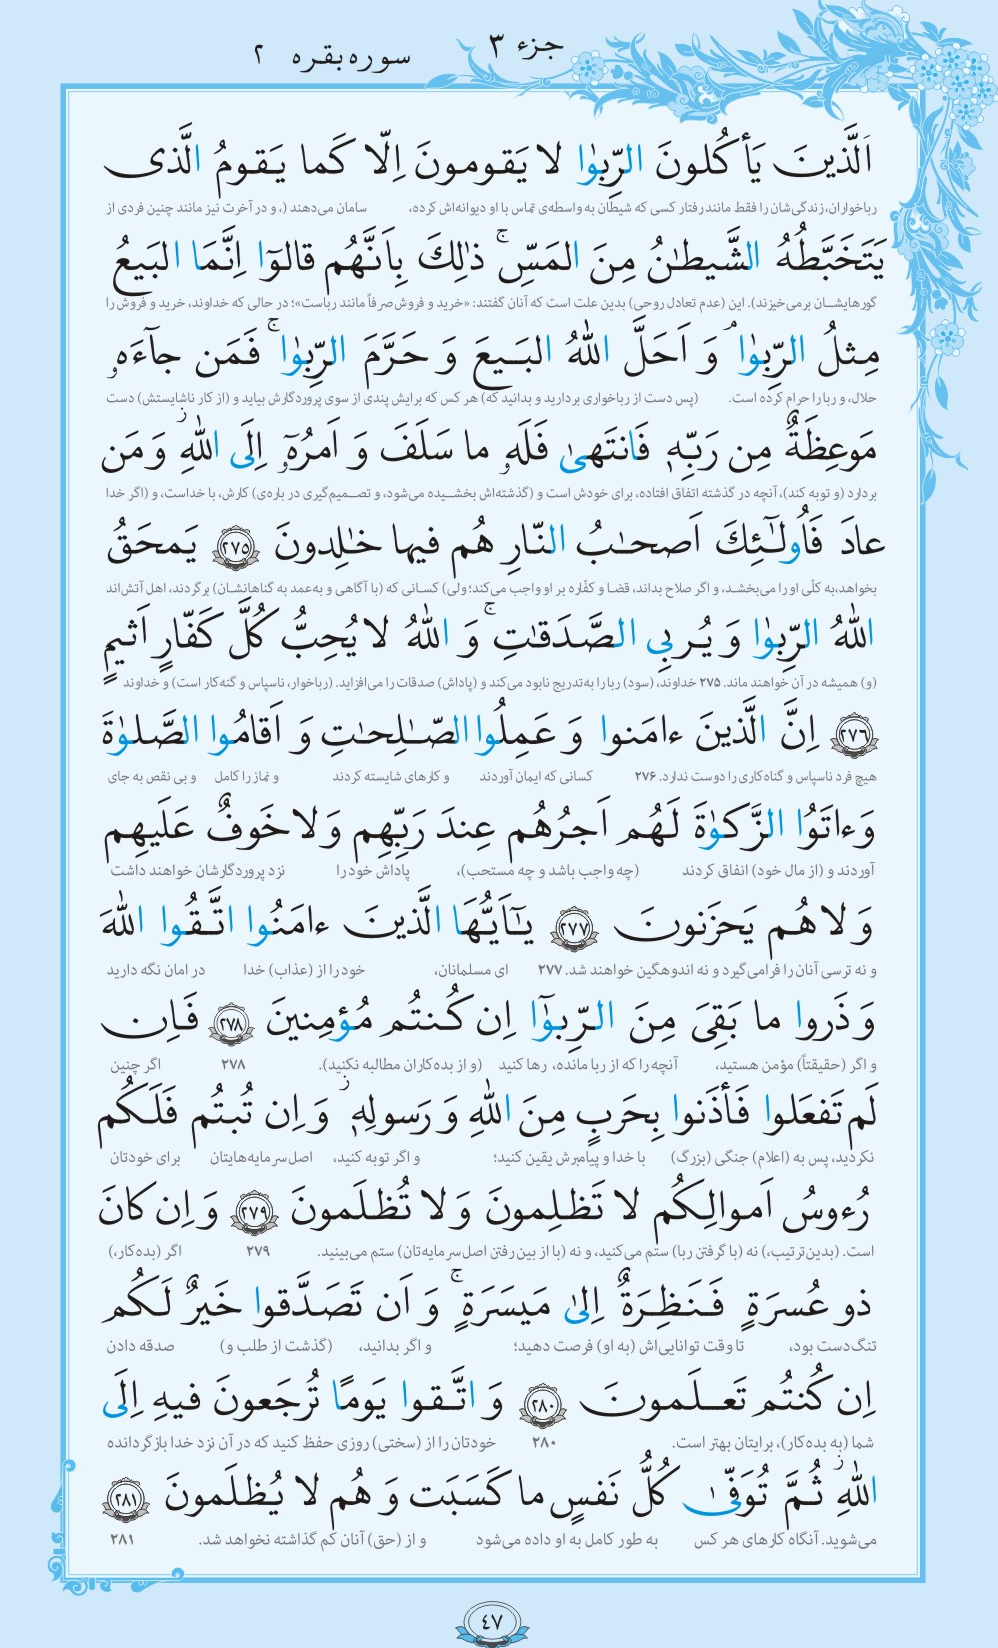 جزء ۳ سوره بقره ۲
اَلَّذینَ یَأکُلونَ الرِّبوٰا لا یَقومونَ اِلّا کَما یَقومُ الَّذی
رباخواران، زندگی‌شان را فقط مانند رفتار کسی که شیطان به واسطه‌ی تماس با او دیوانه‌اش کرده، سامان می‌دهند (، و در آخرت نیز مانند چنین فردی از
یَتَخَبَّطُهُ الشَّیطٰنُ مِنَ المَسِّ ۚ ذٰلِکَ بِاَنَّهُم قالوٓا اِنَّمَا البَیعُ
گورهایشـان برمی‌خیزند). این (عدم تعادل روحی) بدین علت است که آنان گفتند: «خرید و فروش صرفاً مانند رباست»؛ در حالی که خداوند، خرید و فروش را
مِثلُ الرِّبوٰا ۗ وَ اَحَلَّ اللّٰهُ البَیعَ وَ حَرَّمَ الرِّبوٰا ۚ فَمَن جآءَهٗ
حلال، و ربا را حرام کرده است. (پس دست از رباخواری بردارید و بدانید که) هر کس که برایش پندی از سوی پروردگارش بیاید و (از کار ناشایستش) دست
مَوعِظَةٌ مِن رَبِّهٖ فَانتَهیٰ فَلَهٗ ما سَلَفَ وَ اَمرُهٗٓ اِلَی اللّٰهِ ز وَ مَن
بردارد (و توبه کند)، آنچه در گذشته اتفاق افتاده، برای خودش است و (گذشته‌اش بخشـیده می‌شود، و تصـمیم‌گیری در باره‌ی) کارش، با خداست، و (اگر خدا
عادَ فَاُولٰٓئِکَ اَصحٰبُ النّارِ هُم فیها خٰلِدونَ ﴿۲۷۵﴾ یَمحَقُ
بخواهد، به کلّی او را می‌بخشـد، و اگر صلاح بداند، قضا و کفّاره بر او واجب می‌کند؛ ولی) کسـانی که (با آگاهی و به‌عمد به گناهانشـان) برگردند، اهل آتش‌اند
اللّٰهُ الرِّبوٰا وَ یُربِی الصَّدَقٰتِ ۚ وَ اللّٰهُ لا یُحِبُّ کُلَّ کَفّارٍ اَثیمٍ
(و) همیشه در آن خواهند ماند. ۲۷۵ خداوند، (سود) ربا را به‌تدریج نابود می‌کند و (پاداش) صدقات را می‌افزاید. (رباخوار، ناسپاس و گنه‌کار است) و خداوند
﴿۲۷۶﴾ اِنَّ الَّذینَ ءامَنوا وَ عَمِلُوا الصّٰلِحٰتِ وَ اَقامُوا الصَّلوٰةَ
هیچ فرد ناسپاس و گناه‌کاری را دوست ندارد. ۲۷۶ کسانی که ایمان آوردند و کارهای شایسته کردند و نماز را کامل و بی نقص به جای
وَ ءاتَوُا الزَّکوٰةَ لَهُم اَجرُهُم عِندَ رَبِّهِم وَ لا خَوفٌ عَلَیهِم
آوردند و (از مال خود) انفاق کردند (چه واجب باشد و چه مستحب)، پاداش خود را نزد پروردگارشان خواهند داشت
وَ لا هُم یَحزَنونَ ﴿۲۷۷﴾ یٰٓاَیُّهَا الَّذینَ ءامَنُوا اتَّقُوا اللّٰهَ
و نه ترسی آنان را فرامی‌گیرد و نه اندوهگین خواهند شد. ۲۷۷ ای مسلمانان، خود را از (عذاب) خدا در امان نگه دارید
وَ ذَروا ما بَقِیَ مِنَ الرِّبوٰٓا اِن کُنتُم مُؤمِنینَ ﴿۲۷۸﴾ فَاِن
و اگر (حقیقتاً) مؤمن هستید، آنچه را که از ربا مانده، رها کنید (و از بده‌کاران مطالبه نکنید). ۲۷۸ اگر چنین
لَم تَفعَلوا فَأذَنوا بِحَربٍ مِنَ اللّٰهِ وَ رَسولِهٖ ز وَ اِن تُبتُم فَلَکُم
نکردید، پس به (اعلام) جنگی (بزرگ) با خدا و پیامبرش یقین کنید؛ و اگر توبه کنید، اصل سرمایه‌هایتان برای خودتان
رُءوسُ اَموالِکُم لا تَظلِمونَ وَ لا تُظلَمونَ ﴿۲۷۹﴾ وَ اِن کانَ
است. (بدین‌ترتیب،) نه (با گرفتن ربا) ستم می‌کنید، و نه (با از بین‌رفتن اصل‌سرمایه‌تان) ستم می‌بینید. ۲۷۹ اگر (بده‌کار،)
ذو عُسرَةٍ فَنَظِرَةٌ اِلیٰ مَیسَرَةٍ ۚ وَ اَن تَصَدَّقوا خَیرٌ لَکُم
تنگ‌دست بود، تا وقت توانایی‌اش (به او) فرصت دهید؛ و اگر بدانید، (گذشت از طلب و) صدقه دادن
اِن کُنتُم تَعلَمونَ ﴿۲۸۰﴾ وَ اتَّقوا یَومًا تُرجَعونَ فیهِ اِلَی
شما (به بده‌کار)، برایتان بهتر است. ۲۸۰ خودتان را از (سختی) روزی حفظ کنید که در آن نزد خدا بازگردانده
اللّٰهِ ز ثُمَّ تُوَفّیٰ کُلُّ نَفسٍ ما کَسَبَت وَ هُم لا یُظلَمونَ ﴿۲۸۱﴾
می‌شوید. آنگاه کارهای هر کس به طور کامل به او داده می‌شود و از (حق) آنان کم گذاشته نخواهد شد. ۲۸۱
۴۷